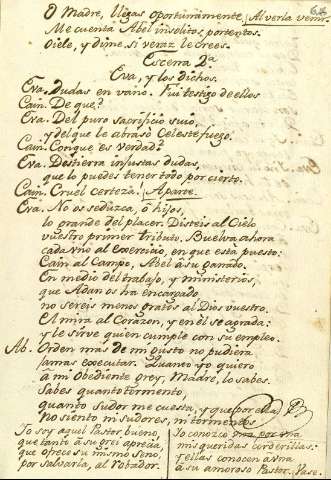 O Madre, llegas oportunamente, Al verla venir.
Me cuenta Abel insolitos portentos.
Oiele, y dime, si veraz le crees.
Escena 2ª
Eva, y los dichos.
Eva. Dudas en vano. Fui testigo de ellos
Cain. De que?
Eva. Del puro sacrificio suio,
y del que le abrasó Celeste fuego.
Cain. Conque es verdad?
Eva. Destierra injustas dudas,
que lo puedes tener todo por cierto.
Cain. Cruel certeza! Aparte.
Eva. No os seduzca, ô hijos,
lo grande del placer. Disteis al Cielo
vuestro primer tributo. Buelva ahora
cada uno al exercicio, en que està puesto:
Cain al Campo, Abel â su ganado.
En medio del trabajo, y ministerios,
que Adan os ha encargado
no sereis menos gratos al Dios vuestro.
El mira al Corazon, y en èl se agrada:
y le sirve quien cumple con su empleo.
Ab. Orden mas de mi gusto no pudiera
jamas executar. Quanto yo quiero
â mi obediente grey, Madre, lo sabes.
Sabes quanto tormento,
quanto sudor me cuesta, y que por ella
ni siento ni sudores, ni tormentos
Yo soy aquel Pastor bueno,
que tanto â su grei aprecia,
que ofrece su mismo seno,
por salvarla, al Robador.
Yo conozco una por una
mis queridas corderillas:
Y ellas conocen â una
â su amoroso Pastor. Vase.